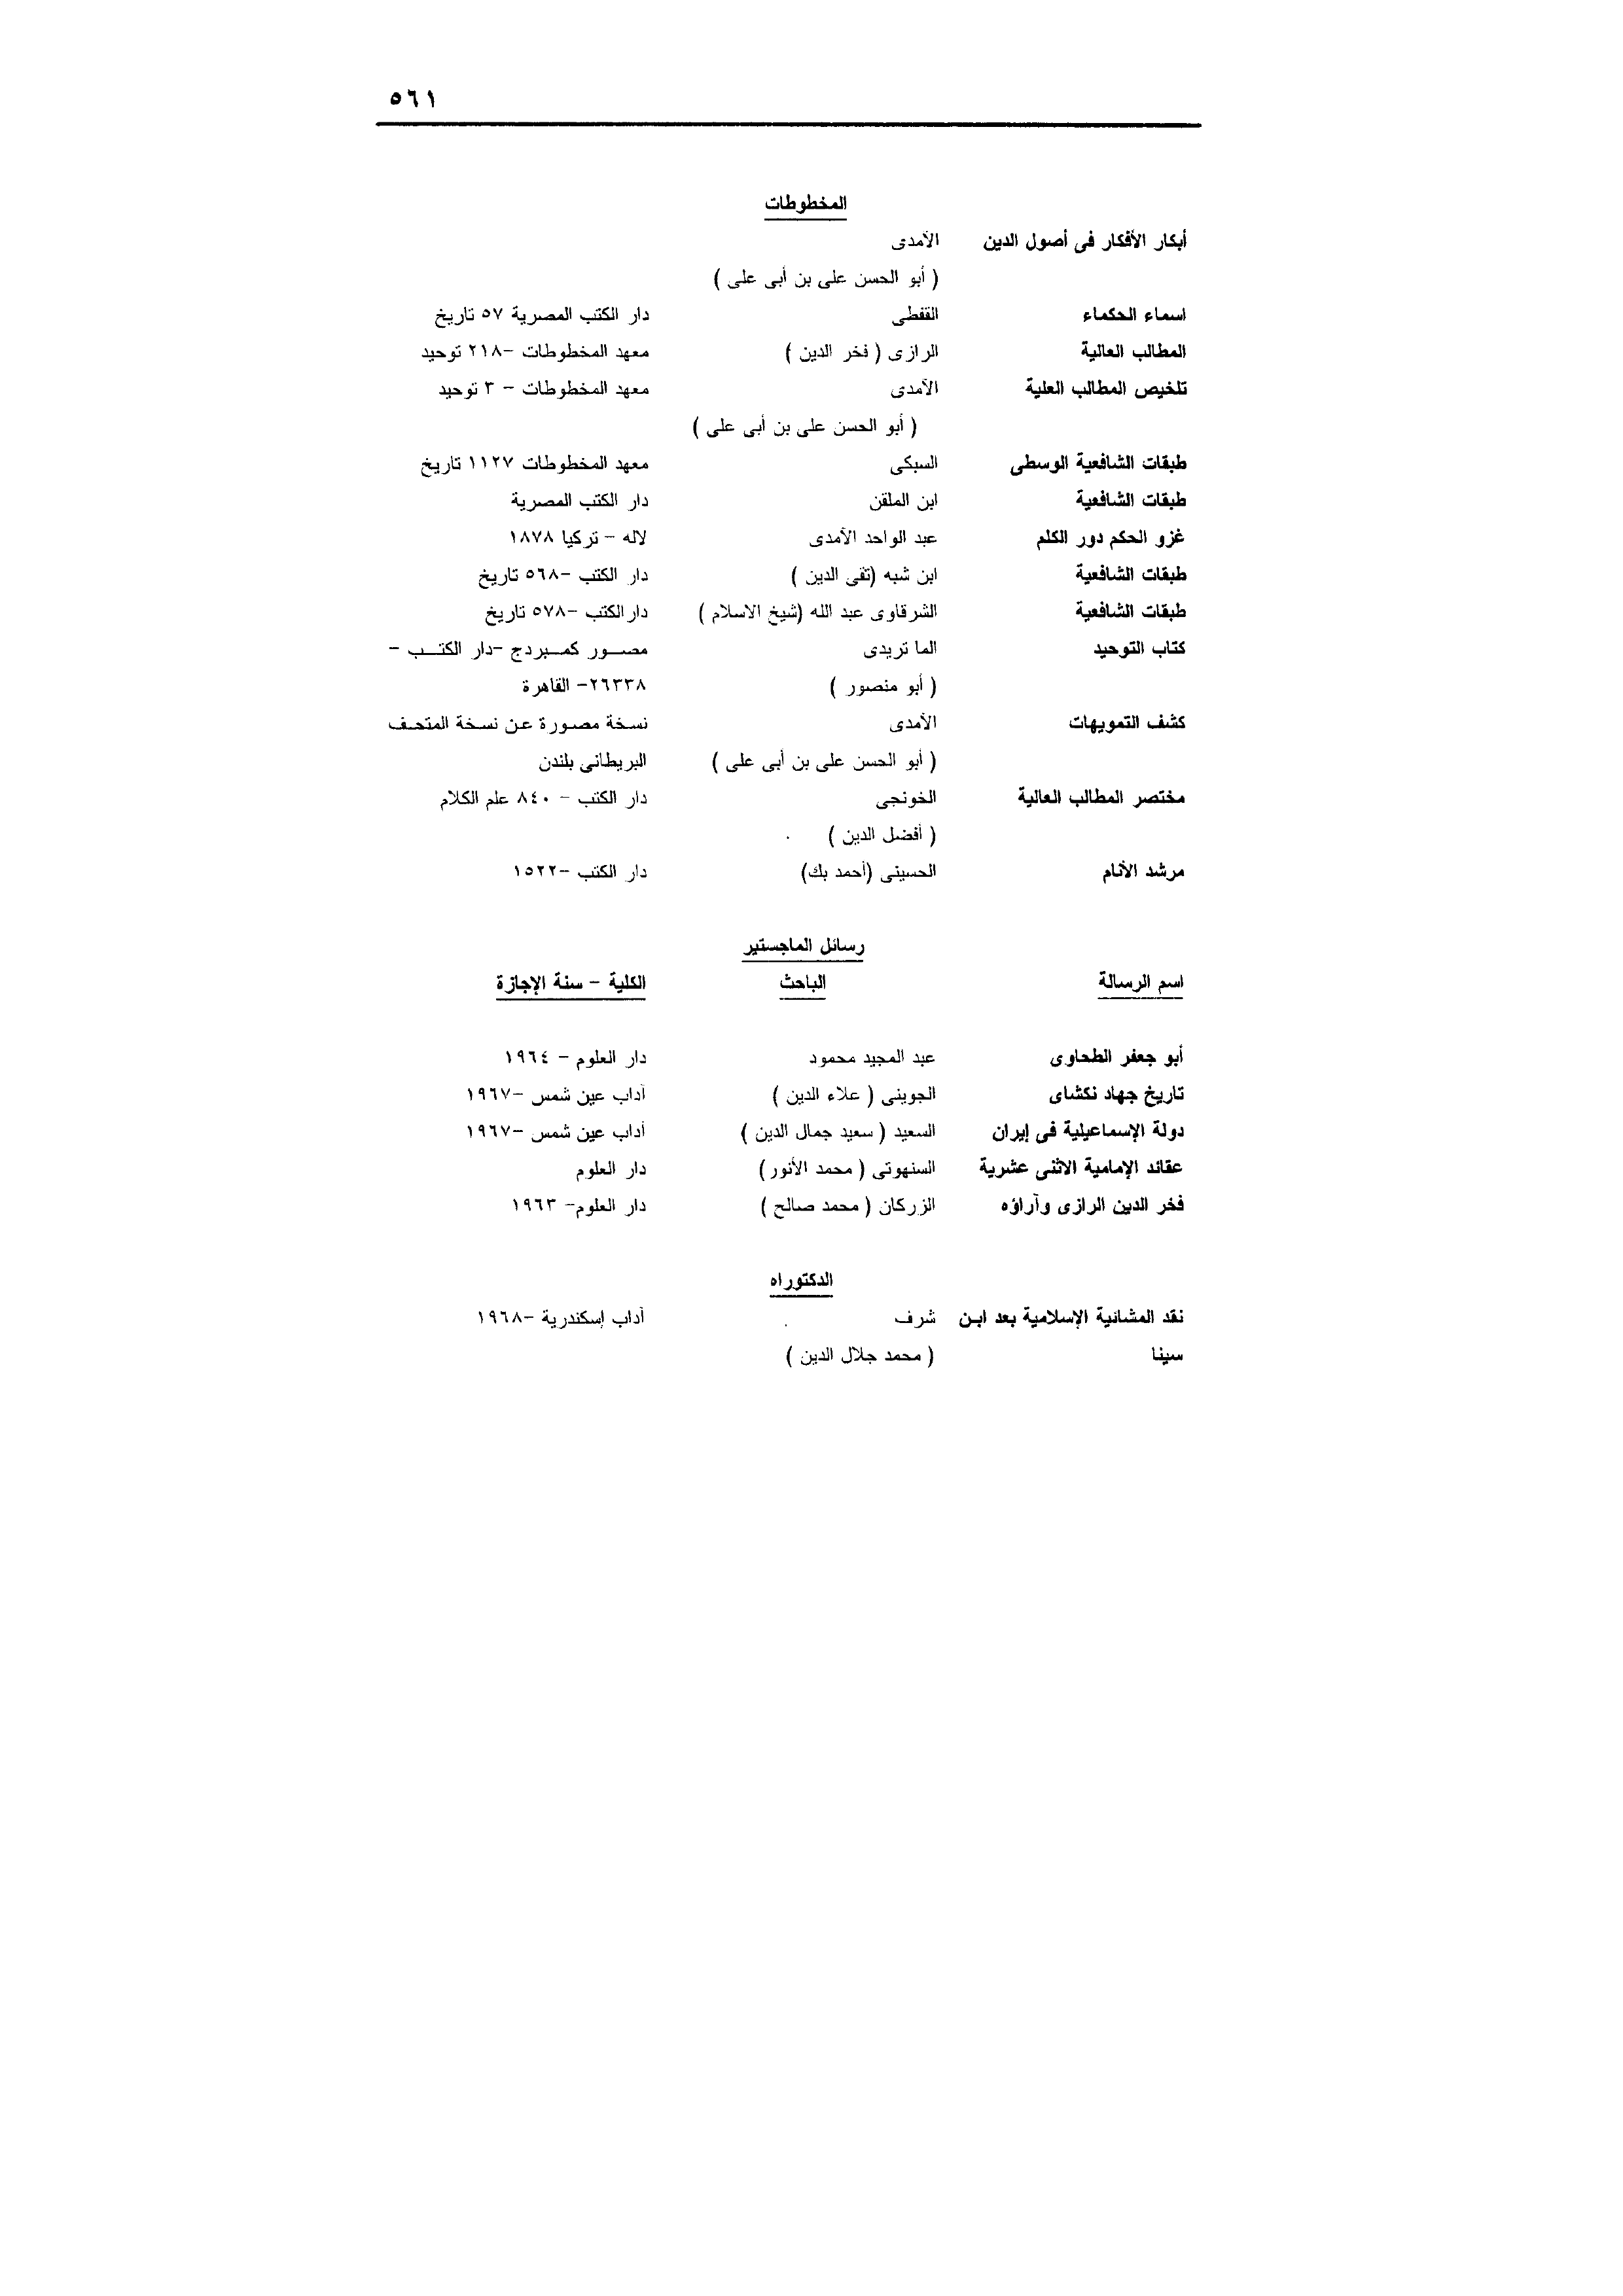 ٥٦١
المخطوطات
أبكار الأفكار فى أصول الدين الآمدى
( أبو الحسن على بن أبى على )
اسماء الحكماء القفطى دار الكتب المصرية ٥٧ تاريخ
المطالب العالية الرازى ( فخر الدين ) معهد المخطوطات -٢١٨ توحيد
تلخيص المطالب العلية الآمدى معهد المخطوطات - ٣ توحيد
( أبو الحسن على بن أبى على )
طبقات الشافعية الوسطى السبكى معهد المخطوطات ١١٢٧ تاريخ
طبقات الشافعية ابن الملقن دار الكتب المصرية
غزو الحكم دور الكلم عبد الواحد الآمدى لاله - تركيا ١٨٧٨
طبقات الشافعية ابن شبه (تقى الدين ) دار الكتب -٥٦٨ تاريخ
طبقات الشافعية الشرقاوى عبد الله (شيخ الاسلام ) دارالكتب -٥٧٨ تاريخ
كتاب التوحيد الما تريدى مصور كمبردج -دار الكتب -
( أبو منصور ) ٢٦٣٣٨- القاهرة
كشف التمويهات الآمدى نسخة مصورة عن نسخة المتحف
( أبو الحسن على بن أبى على ) البريطانى بلندن
مختصر المطالب العالية الخونجى دار الكتب - ٨٤٠ علم الكلام
( أفضل الدين )
مرشد الأنام الحسينى (أحمد بك) دار الكتب -١٥٢٢
رسائل الماجستير
اسم الرسالة الباحث الكلية - سنة الإجازة
أبو جعفر الطحاوى عبد المجيد محمود دار العلوم - ١٩٦٤
تاريخ جهاد نكشاى الجوينى ( علاء الدين ) آداب عين شمس -١٩٦٧
دولة الإسماعيلية فى إيران السعيد ( سعيد جمال الدين ) أداب عين شمس -١٩٦٧
عقائد الإمامية الاثنى عشرية السنهوتى ( محمد الأنور) دار العلوم
فخر الدين الرازى وآراؤه الزركان ( محمد صالح ) دار العلوم- ١٩٦٣
الدكتوراه
نقد المشائية الإسلامية بعد ابن شرف آداب إسكندرية -١٩٦٨
سينا ( محمد جلال الدين )